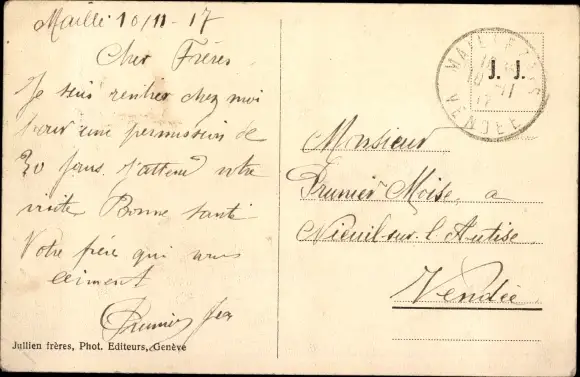 Maillé 10/11-17
Cher Frères
Je suis rentrer chez moi
pour une permission de
30 jours. J'attend votre
visite Bonne santé
Votre frère qui vous
aiment
Prunier
Jullien frères, Phot. Editeurs, Genève
J. J.
VENDÉE
Monsieur
Prunier Moise, a
Nieuil-sur-l'Autise
Vendée